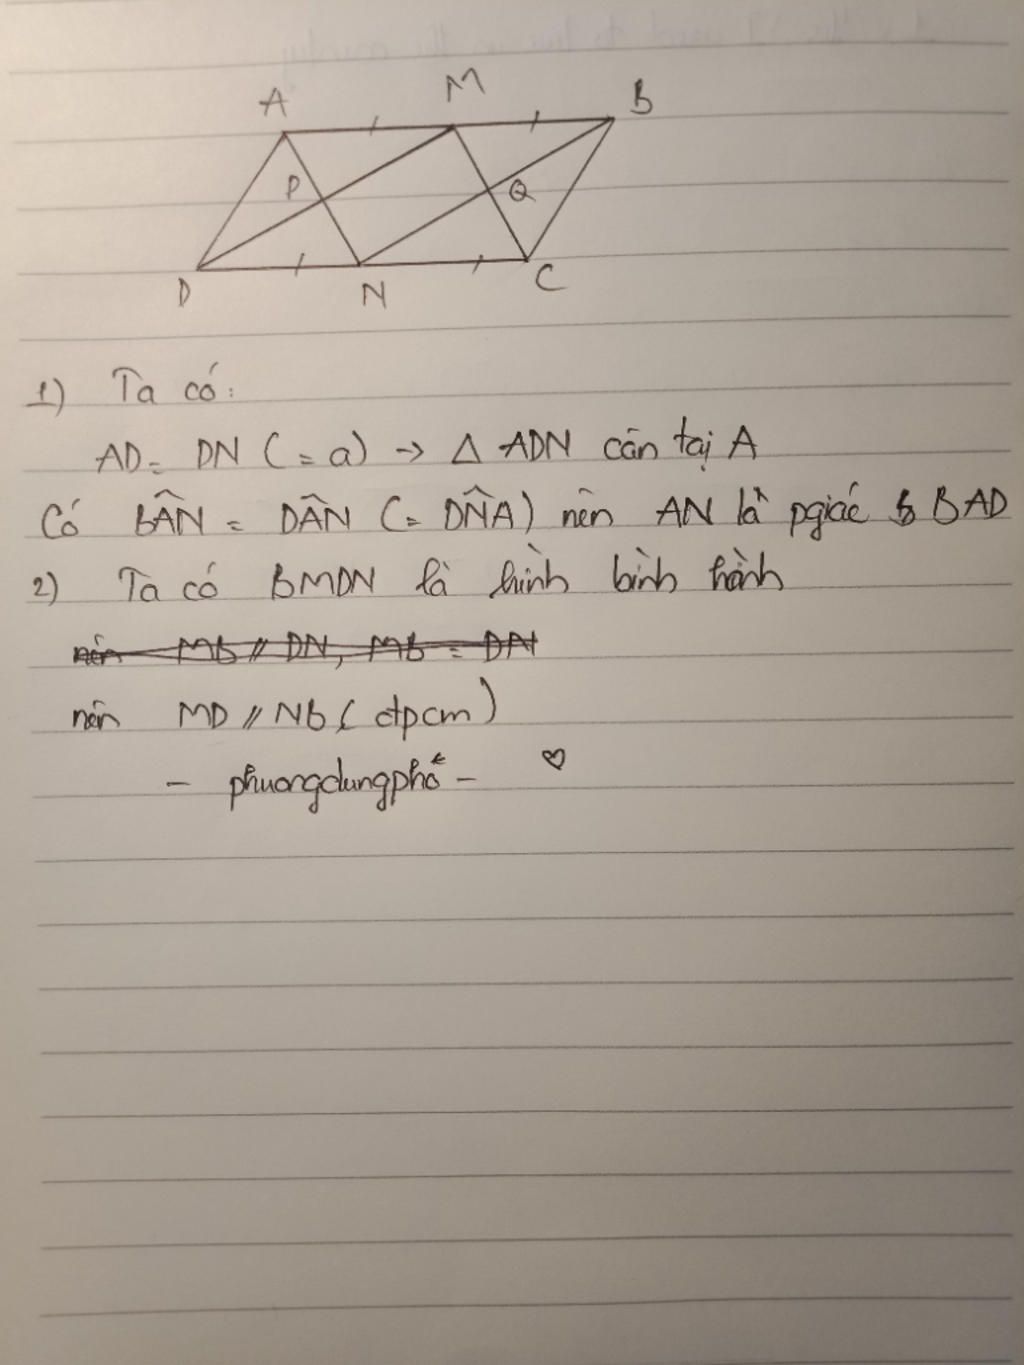 A M B
P Q
D N C
1) Ta có:
AD = DN (= a) → Δ ADN cân tại A
Có BÂN = DÂN (= DN̂A) nên AN là pgiác BAD
2) Ta có BMDN là hình bình hành
nên Mb // DN, Mb = DN
nên MD // Nb (đpcm)
- phuongdungphố - ♡